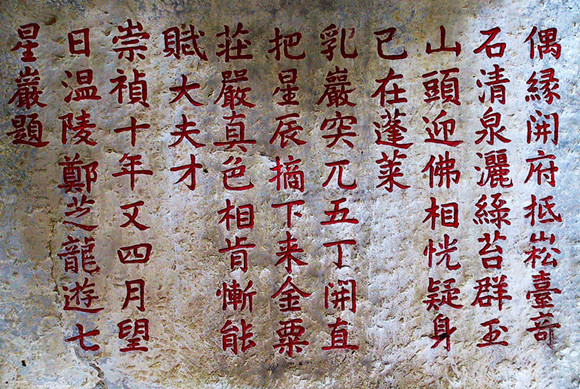 偶縁開府抵崧臺奇
石清泉灑綠苔群玉
山頭迎佛相恍疑身
已在蓬萊
乳巖突兀五丁開直
把星辰摘下来金粟
莊嚴真色相肯慚能
賦大夫才
崇禎十年又四月望
日温陵鄭芝龍遊七
星巖題